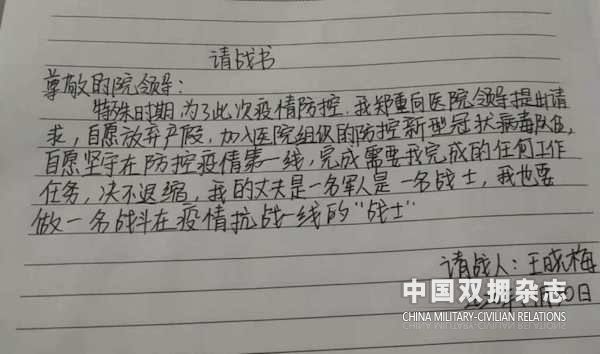 请战书
尊敬的院领导：
特殊时期，为了此次疫情防控，我郑重向医院领导提出请
求，自愿放弃产假，加入医院组织的防控新型冠状病毒队伍，
自愿坚守在防控疫情第一线，完成需要我完成的任何工作
任务，决不退缩，我的丈夫是一名军人是一名战士，我也要
做一名战斗在疫情抗战一线的“战士”
请战人：王晓梅
月30日
中国双拥杂志
CHINA MILITARY-CIVILIAN RELATIONS